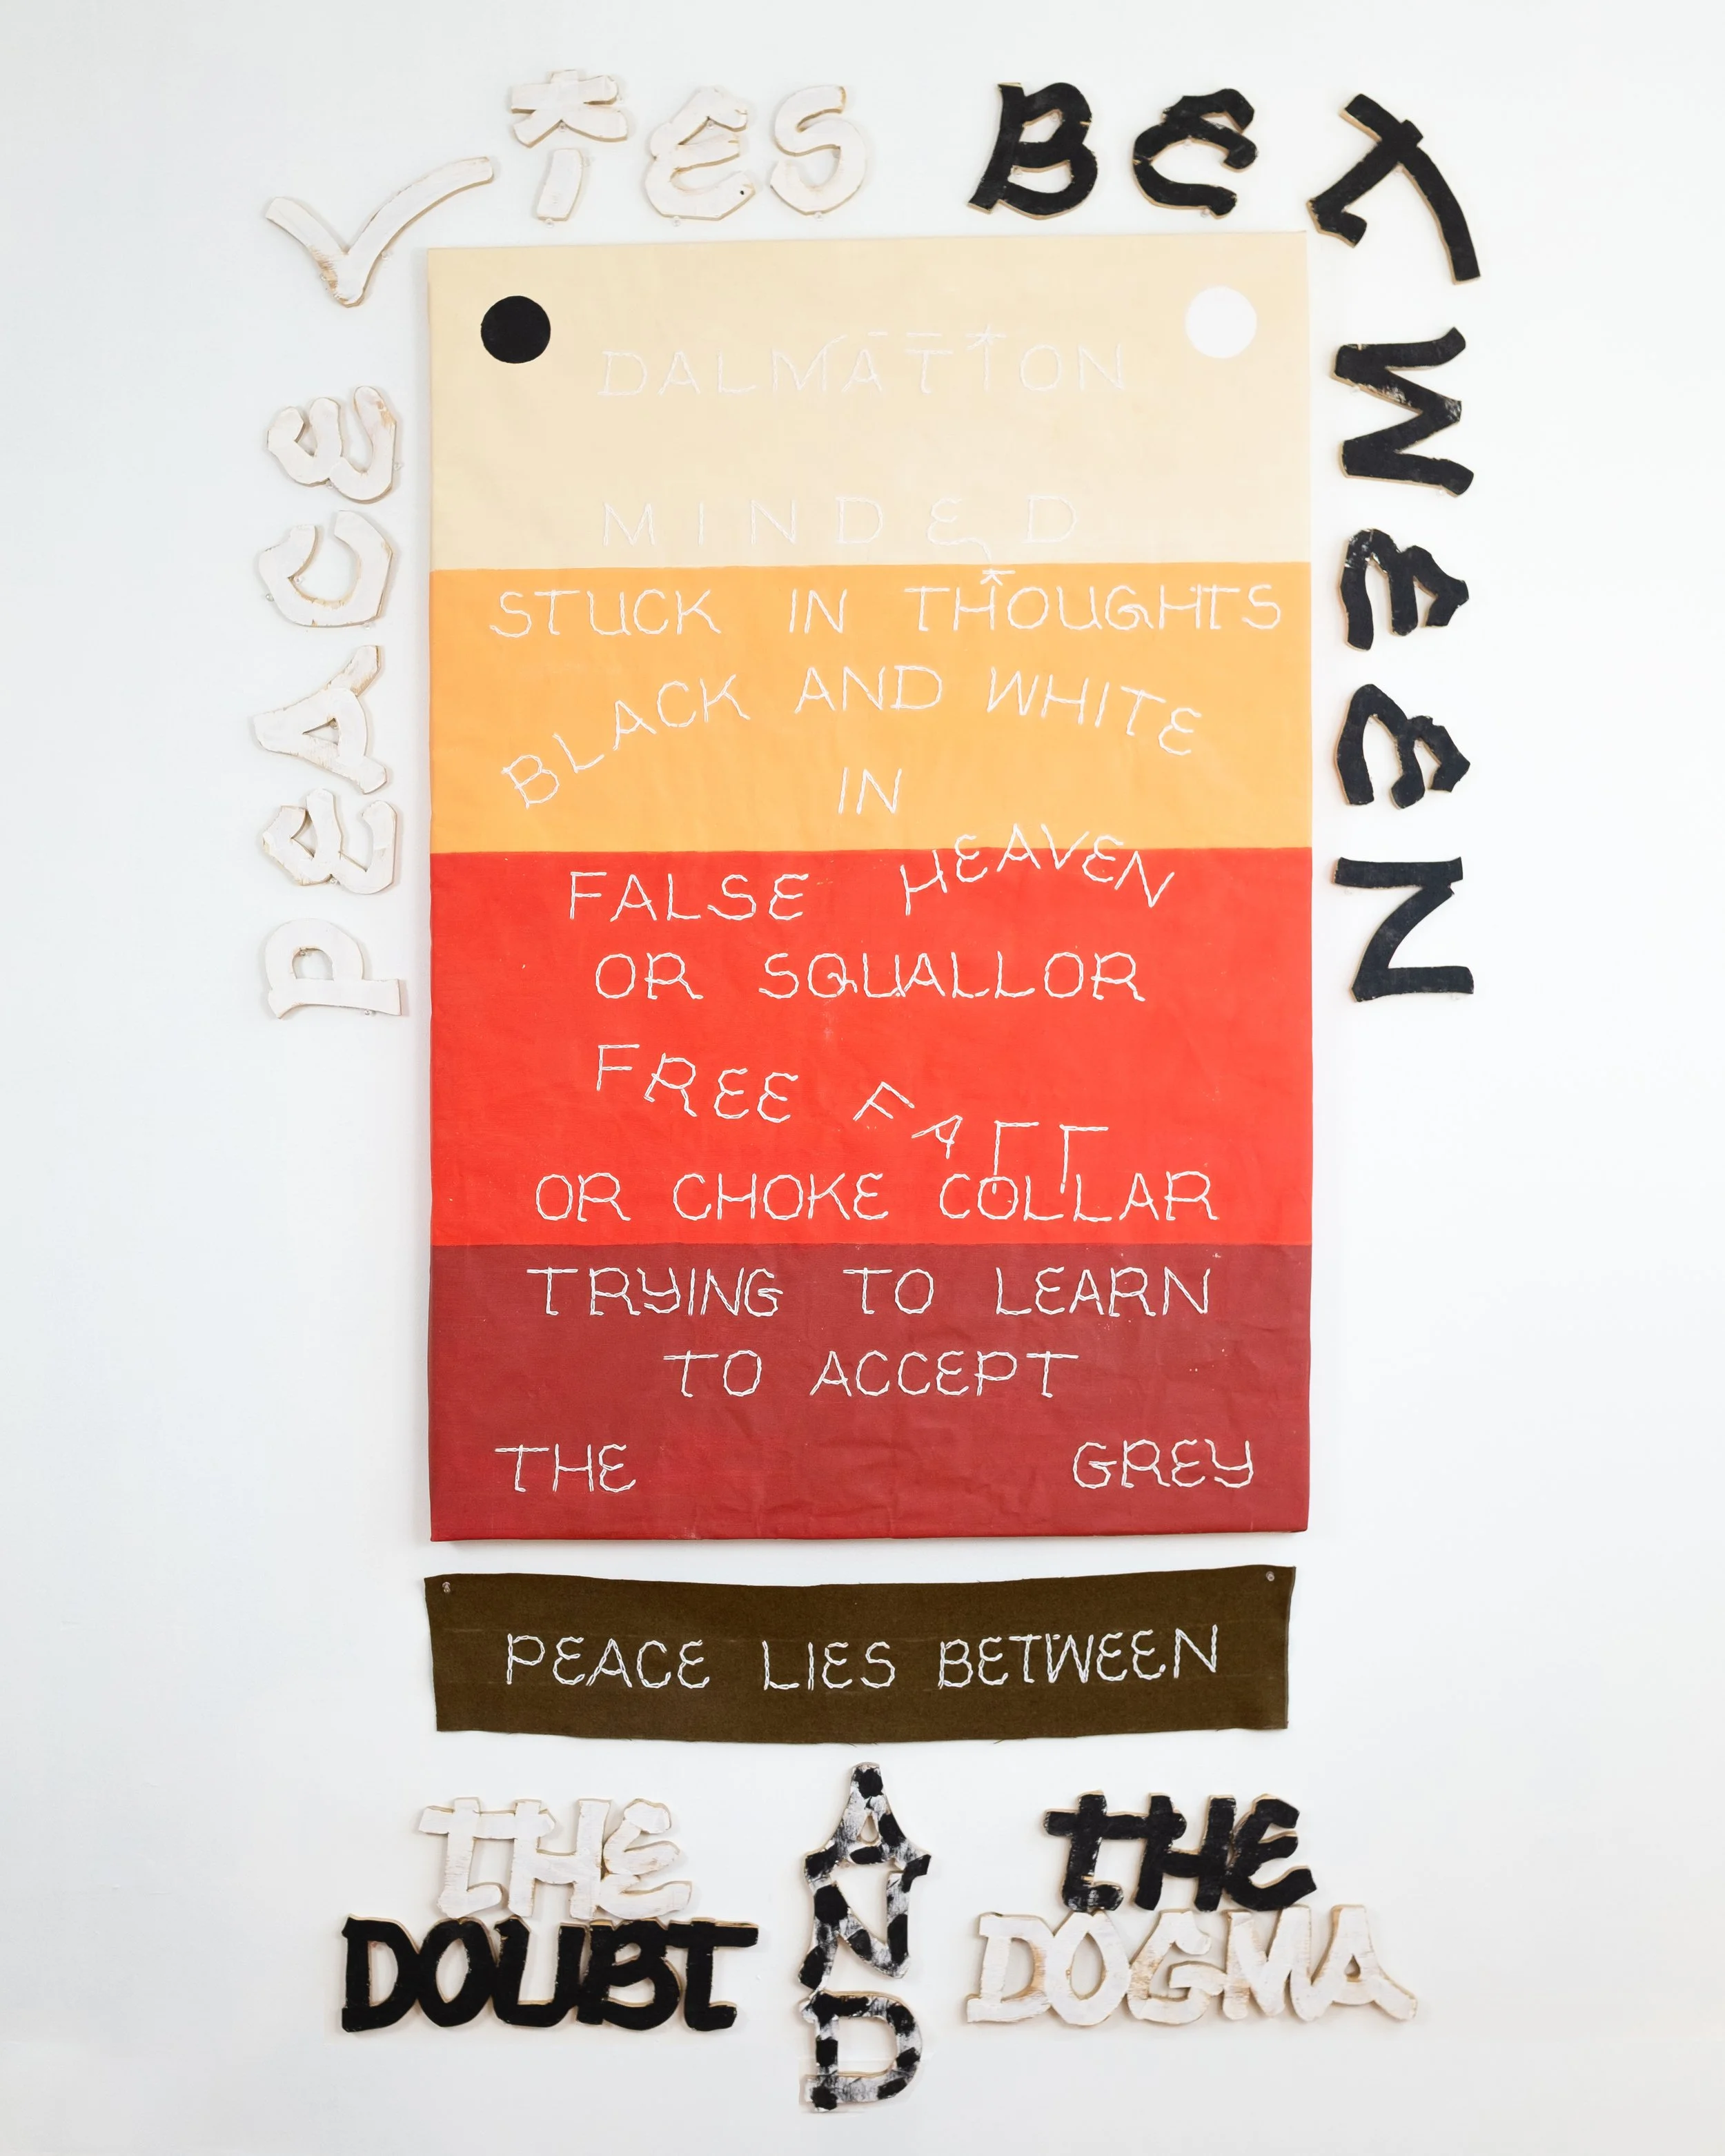 PEACE LIES BETWEEN
DALMATION
MINDED
STUCK IN THOUGHTS
BLACK AND WHITE
IN
FALSE HEAVEN
OR SQUALLOR
FREE FALL
OR CHOKE COLLAR
TRYING TO LEARN
TO ACCEPT
THE GREY
PEACE LIES BETWEEN
THE
DOUBT
AND
THE
DOGMA